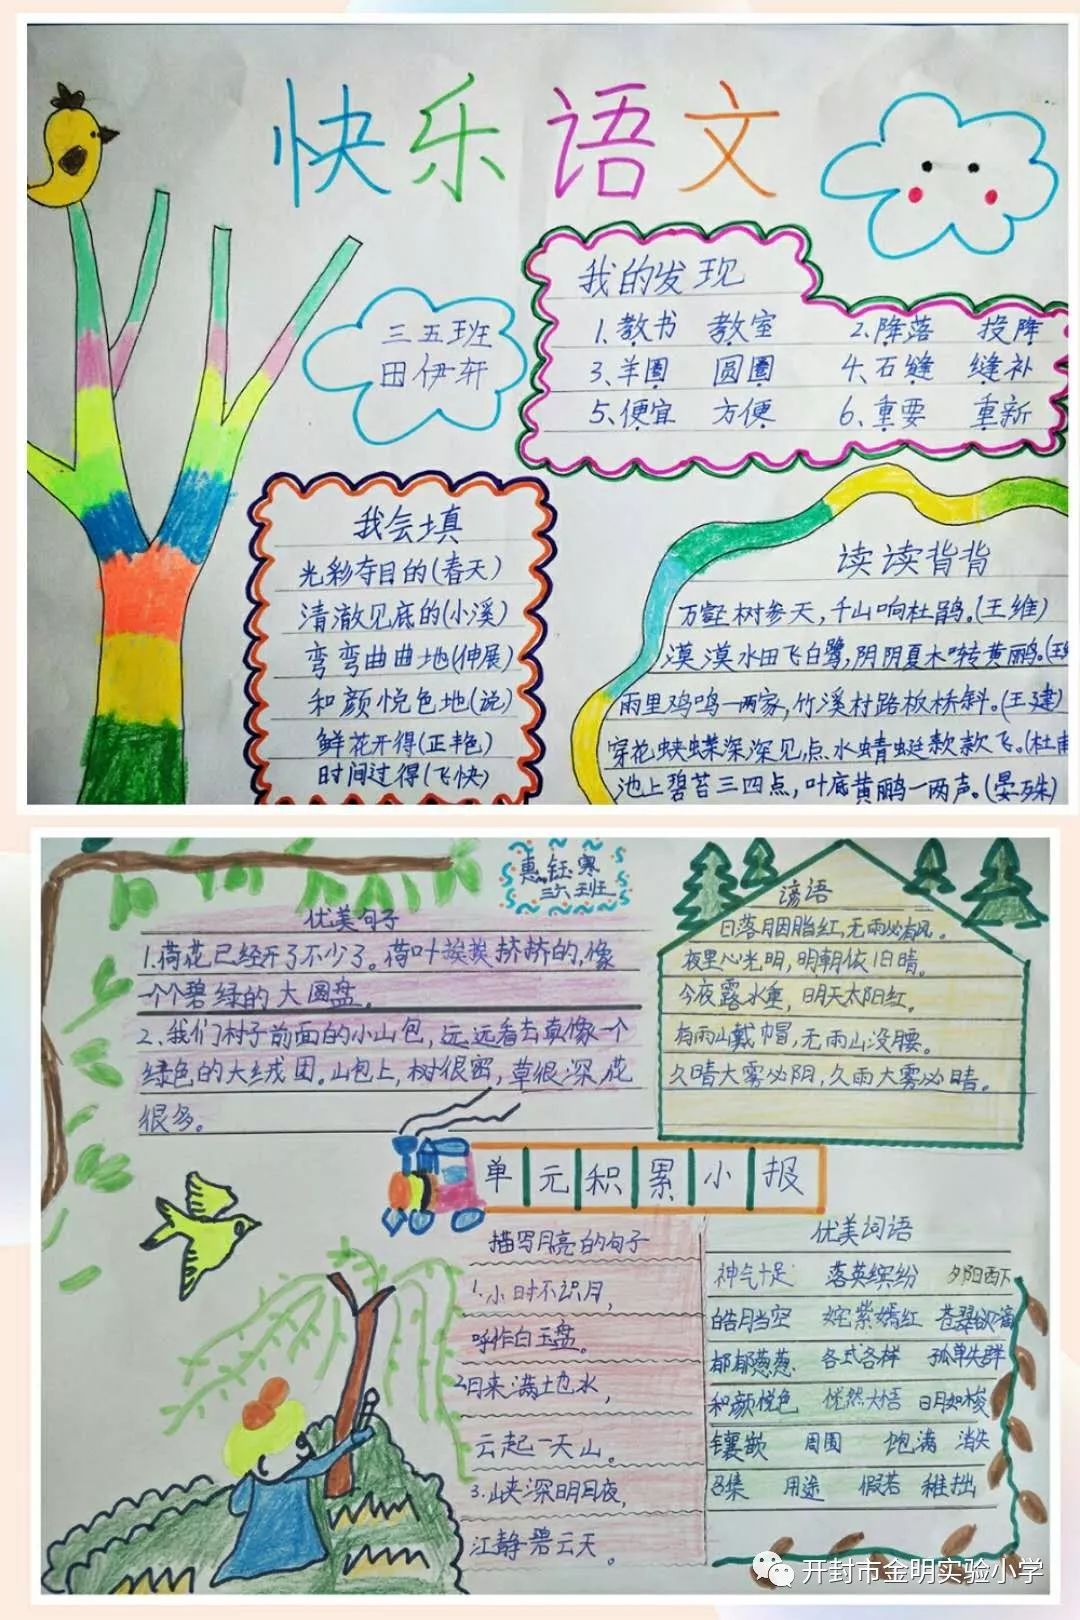 快乐语文
三五班
田伊轩
我的发现
1.教书 教室 2.降落 投降
3、羊圈 圆圈 4、石缝 缝补
5、便宜 方便 6、重要 重新
我会填
光彩夺目的(春天)
清澈见底的(小溪)
弯弯曲曲地(伸展)
和颜悦色地(说)
鲜花开得(正艳)
时间过得(飞快)
读读背背
万壑树参天,千山响杜鹃。(王维)
漠漠水田飞白鹭,阴阴夏木啭黄鹂。(王维
雨里鸡鸣一两家,竹溪村路板桥斜。(王建)
穿花蛱蝶深深见,点水蜻蜓款款飞。(杜甫
池上碧苔三四点,叶底黄鹂一两声。(晏殊)
惠钰寒
三六班
优美句子
1.荷花已经开了不少了。荷叶挨挨挤挤的,像
一个个碧绿的大圆盘。
2、我们村子前面的小山包,远远看去真像一个
绿色的大绒团。山包上,树很密,草很深,花
很多。
谚语
日落月胭脂红,无雨必有风。
夜里心光明,明朝依旧晴。
今夜露水重,明天太阳红。
有雨山戴帽,无雨山没腰。
久晴大雾必阴,久雨大雾必晴。
单元积累小报
描写月亮的句子
1.小时不识月,
呼作白玉盘。
2.月来满地水,
云起一天山。
3.山峡深明月夜,
江静碧云天。
优美词语
神气十足 落英缤纷 夕阳西下
皓月当空 姹紫嫣红 苍翠欲滴
郁郁葱葱 各式各样 孤单失群
和颜悦色 恍然大悟 日月如梭
镶嵌 周围 饱满 消失
召集 用途 假若 稚拙
开封市金明实验小学